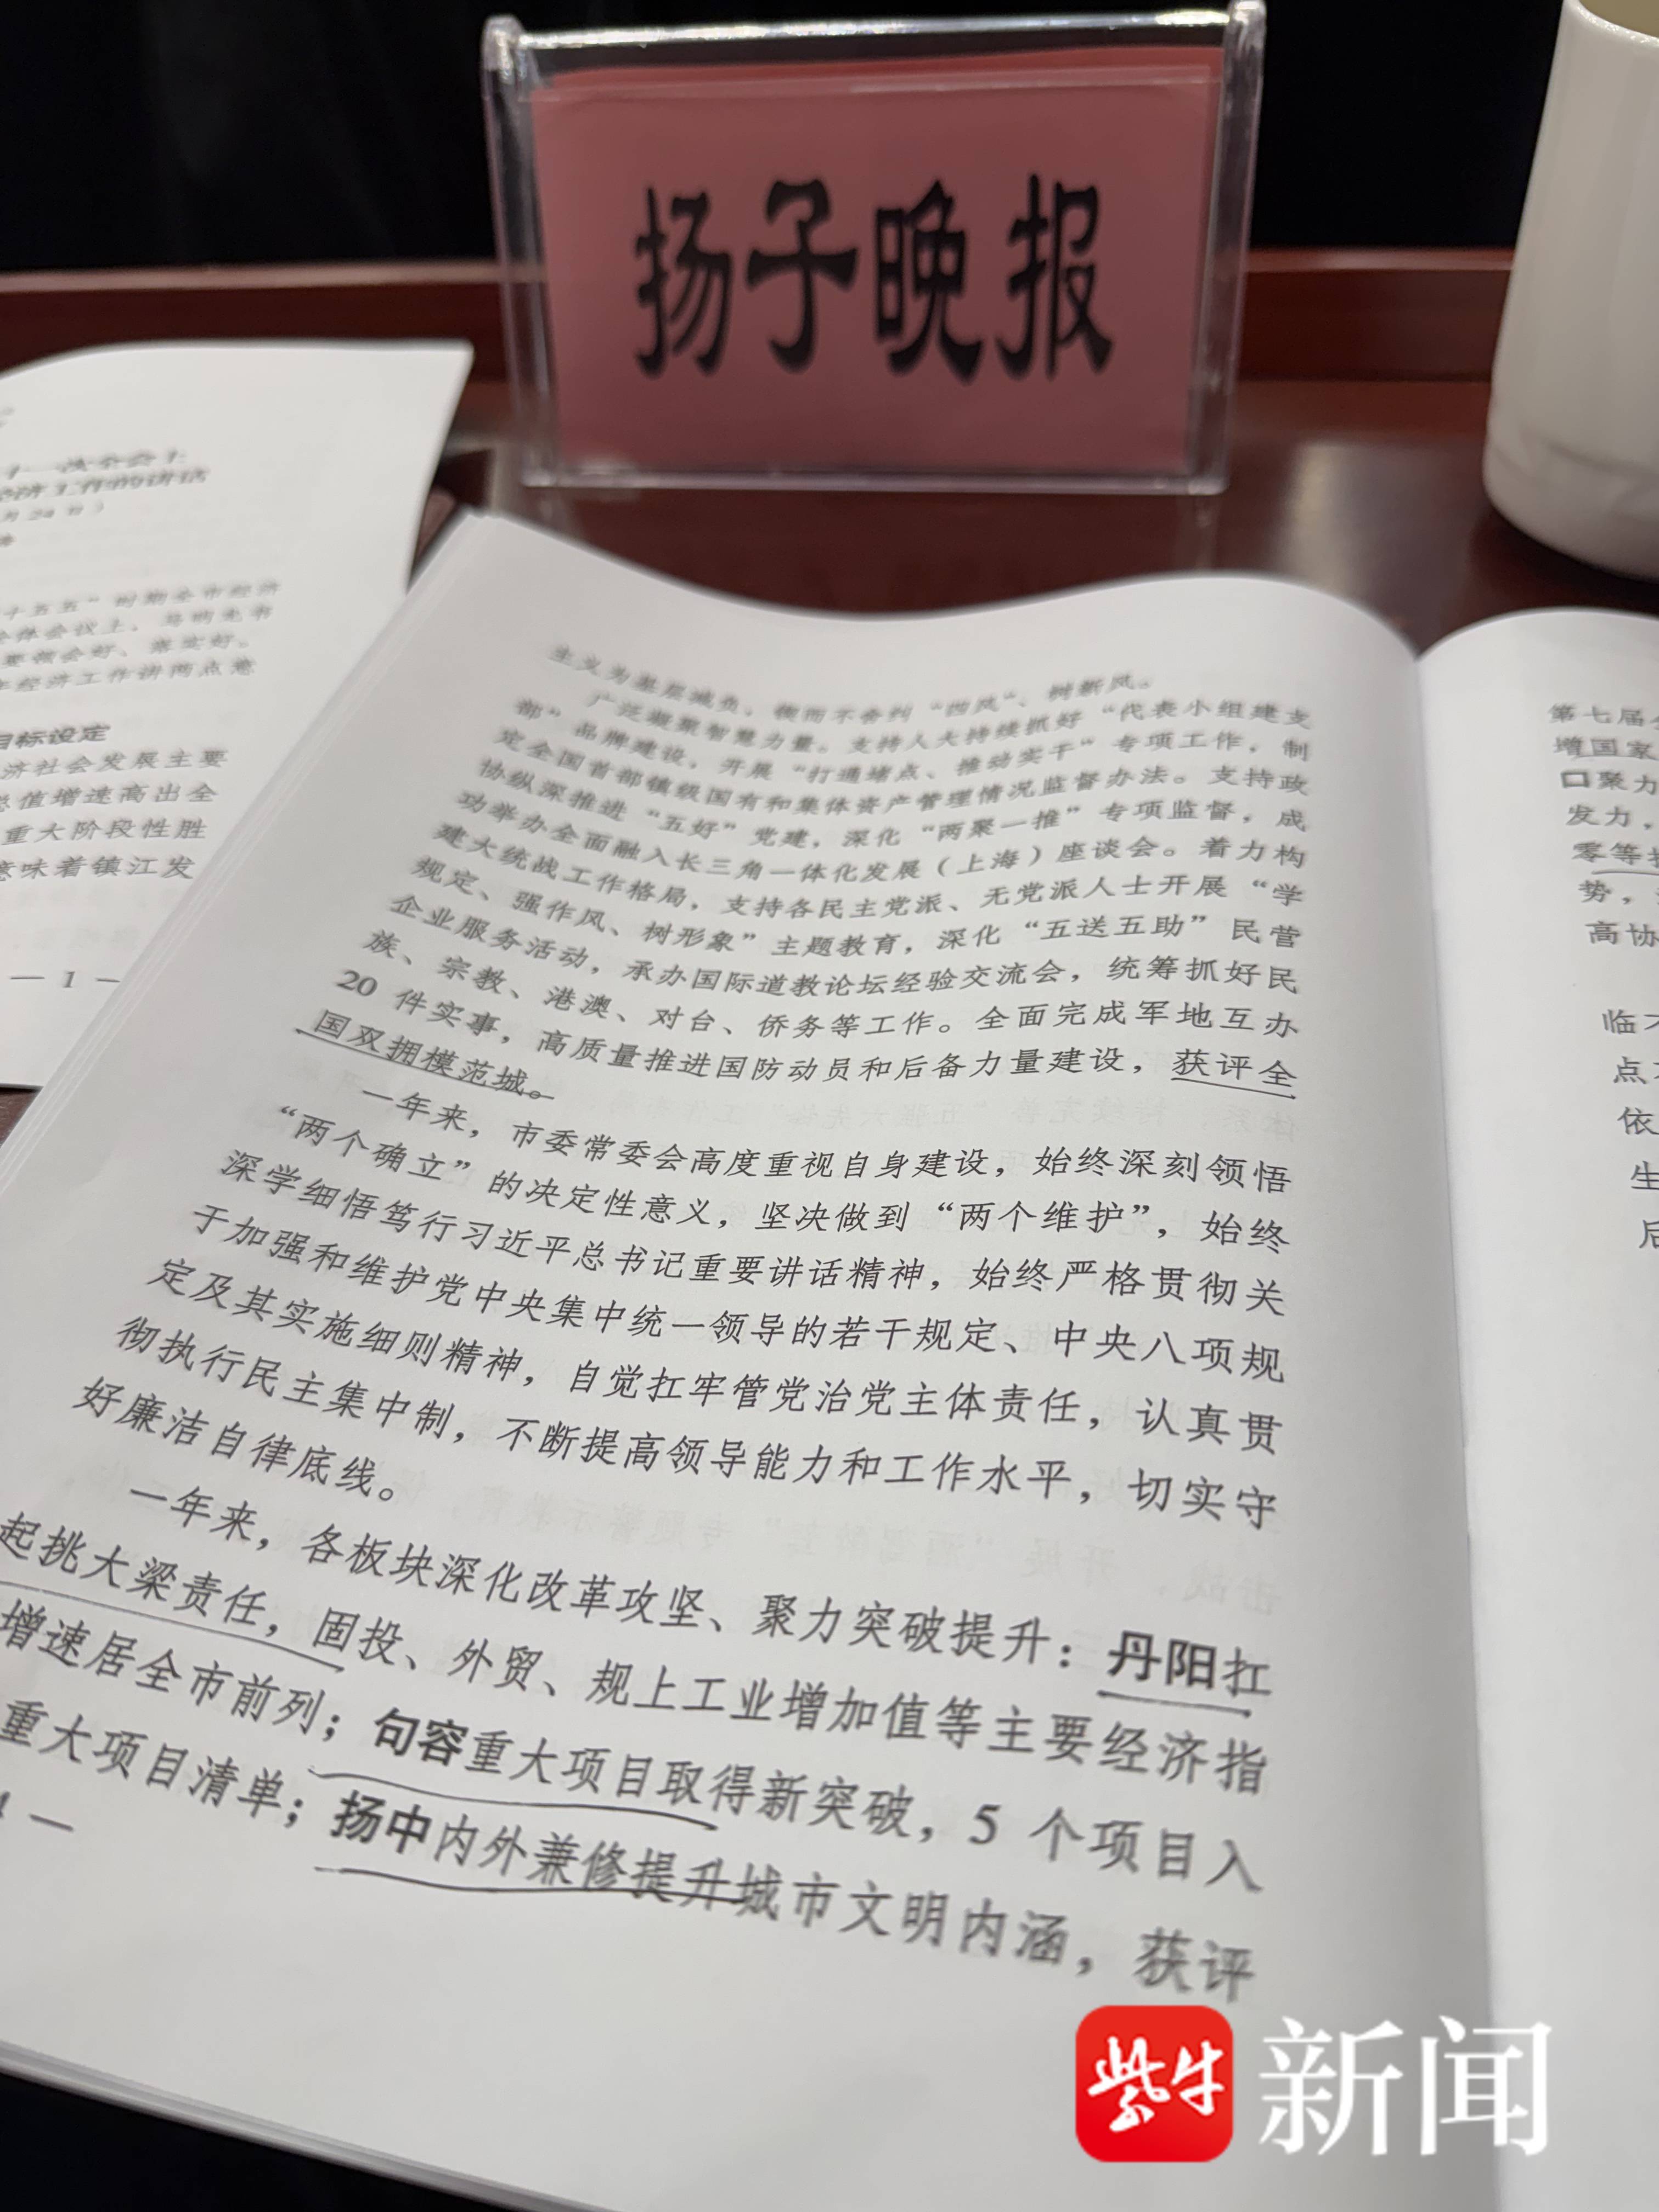 扬子晚报
十一次全会上
经济工作的讲话
月24日）
十五五”时期全市经济
全体会议上，马明龙书
要领会好、落实好。
年经济工作讲两点意
目标设定
济社会发展主要
总值增速高出全
重大阶段性胜
意味着镇江发
— 1 —
主义为基层减负，锲而不舍纠“四风”、树新风。
广泛凝聚智慧力量。支持人大持续抓好“代表小组建支
部”品牌建设，开展“打通堵点、推动实干”专项工作，制
定全国首部镇级国有和集体资产管理情况监督办法。支持政
协纵深推进“五好”党建，深化“两聚一推”专项监督，成
功举办全面融入长三角一体化发展（上海）座谈会。着力构
建大统战工作格局，支持各民主党派、无党派人士开展“学
规定、强作风、树形象”主题教育，深化“五送五助”民营
企业服务活动，承办国际道教论坛经验交流会，统筹抓好民
族、宗教、港澳、对台、侨务等工作。全面完成军地互办
20 件实事，高质量推进国防动员和后备力量建设，获评全
国双拥模范城。
一年来，市委常委会高度重视自身建设，始终深刻领悟
“两个确立”的决定性意义，坚决做到“两个维护”，始终
深学细悟笃行习近平总书记重要讲话精神，始终严格贯彻关
于加强和维护党中央集中统一领导的若干规定、中央八项规
定及其实施细则精神，自觉扛牢管党治党主体责任，认真贯
彻执行民主集中制，不断提高领导能力和工作水平，切实守
好廉洁自律底线。
一年来，各板块深化改革攻坚、聚力突破提升：丹阳扛
起挑大梁责任，固投、外贸、规上工业增加值等主要经济指
增速居全市前列；句容重大项目取得新突破，5 个项目入
重大项目清单；扬中内外兼修提升城市文明内涵，获评
第七届
增国家
口聚力
发力，
零等
势，
高协
临
点
依
生
后
紫牛新闻